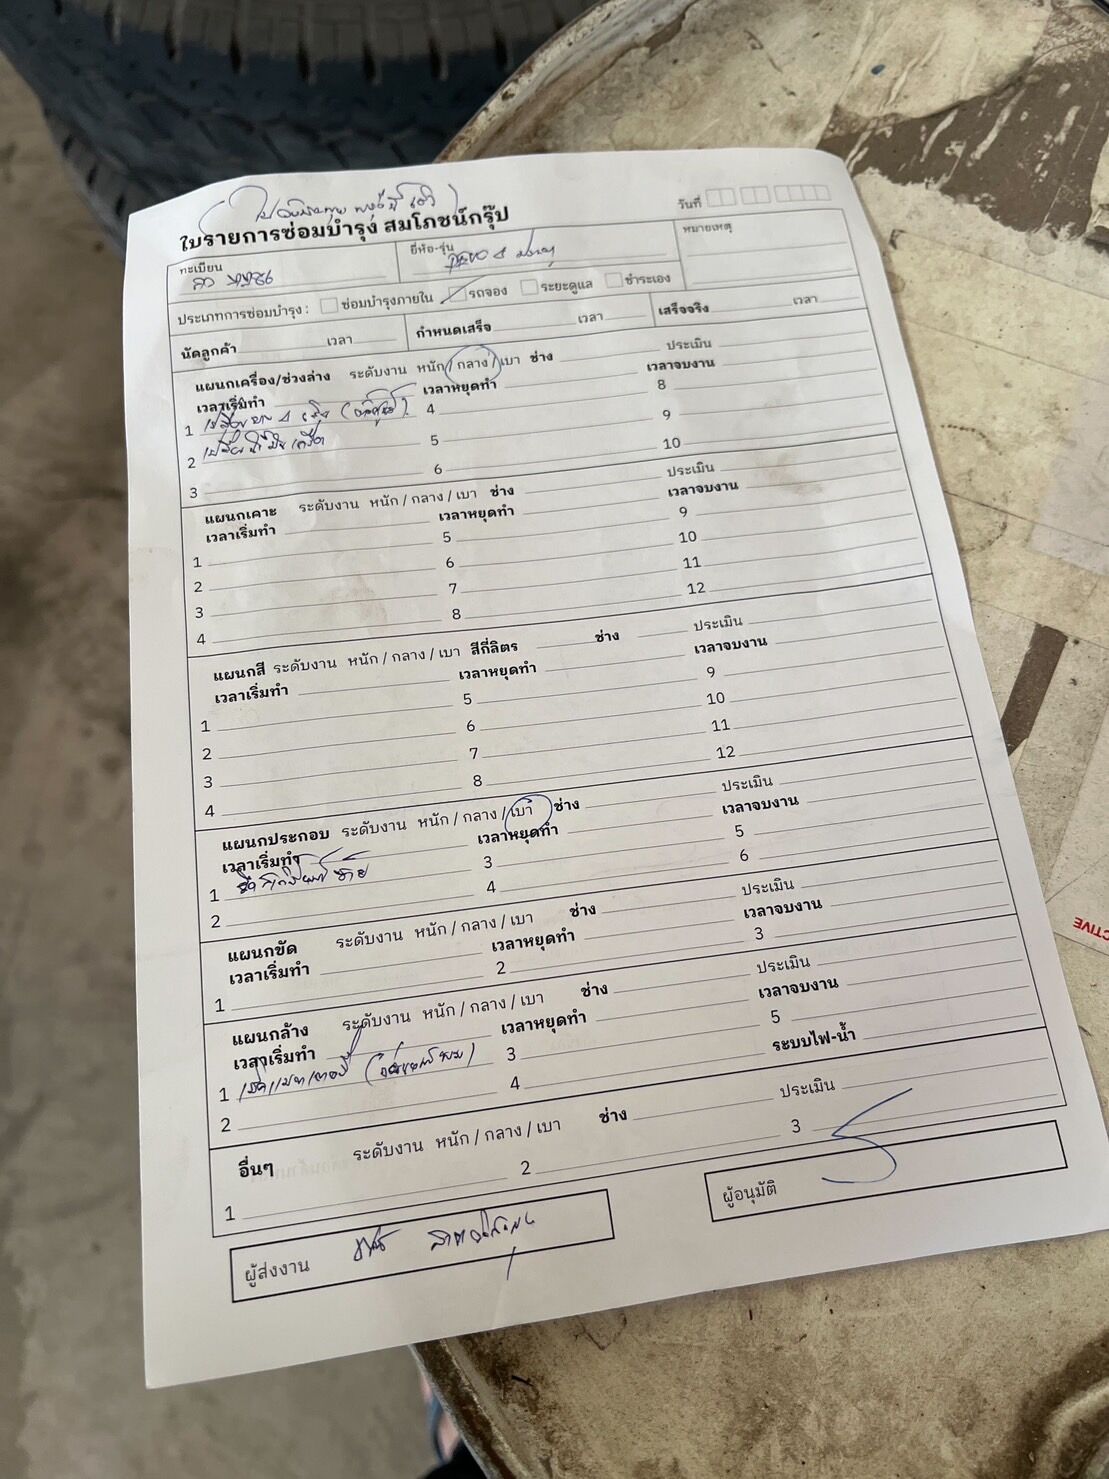 ใบรายการซ่อมบำรุง สมโภชน์กรุ๊ป
วันที่
ทะเบียน
ยี่ห้อ-รุ่น
หมายเหตุ
ประเภทการซ่อมบำรุง : ซ่อมบำรุงภายใน รถจอง ระยะดูแล ชำระเอง
นัดลูกค้า เวลา กำหนดเสร็จ เวลา เสร็จจริง เวลา
แผนกเครื่อง/ช่วงล่าง ระดับงาน หนัก / กลาง / เบา ช่าง ประเมิน
เวลาเริ่มทำ เวลาหยุดทำ เวลาจบงาน
1 เปลี่ยนยาง 4 เส้น 4 8
2 เปลี่ยนน้ำมันเครื่อง 5 9
3 6 10
แผนกเคาะ ระดับงาน หนัก / กลาง / เบา ช่าง ประเมิน
เวลาเริ่มทำ เวลาหยุดทำ เวลาจบงาน
1 5 9
2 6 10
3 7 11
4 8 12
แผนกสี ระดับงาน หนัก / กลาง / เบา สีกี่ลิตร ช่าง ประเมิน
เวลาเริ่มทำ เวลาหยุดทำ เวลาจบงาน
1 5 9
2 6 10
3 7 11
4 8 12
แผนกประกอบ ระดับงาน หนัก / กลาง / เบา ช่าง ประเมิน
เวลาเริ่มทำ เวลาหยุดทำ เวลาจบงาน
1 3 5
2 4 6
แผนกขัด ระดับงาน หนัก / กลาง / เบา ช่าง ประเมิน
เวลาเริ่มทำ เวลาหยุดทำ เวลาจบงาน
1 2 3
แผนกล้าง ระดับงาน หนัก / กลาง / เบา ช่าง ประเมิน
เวลาเริ่มทำ เวลาหยุดทำ เวลาจบงาน
1 3 5
2 4 ระบบไฟ-น้ำ
อื่นๆ ระดับงาน หนัก / กลาง / เบา ช่าง ประเมิน
1 2 3
ผู้ส่งงาน
ผู้อนุมัติ